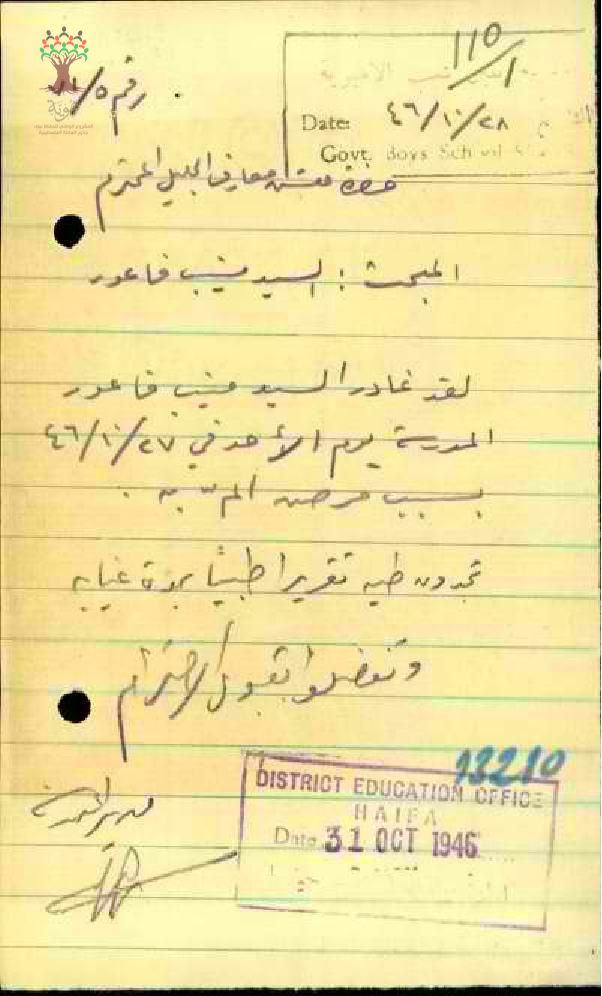 110/1
Date: ٤٦/١٠/٢٨
Govt. Boys School
رقم ٥/
حضرة مفتش معارف الجليل المحترم
المبحث : السيد منيب فاعور
لقد غادر السيد منيب فاعور
المدرسة يوم الأحد في ٤٦/١٠/٢٧
بسبب مرض المّ به .
تجدون طيه تقريرا طبيا بمدة غيابه
وتفضلوا بقبول الاحترام
مدير المدرسة
13210
DISTRICT EDUCATION OFFICE
HAIFA
Date 31 OCT 1946